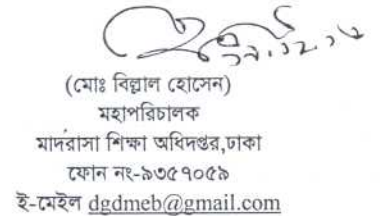 (মোঃ বিল্লাল হোসেন)
মহাপরিচালক
মাদরাসা শিক্ষা অধিদপ্তর,ঢাকা
ফোন নং-৯৩৫৭০৫৯
ই-মেইল dgdmeb@gmail.com